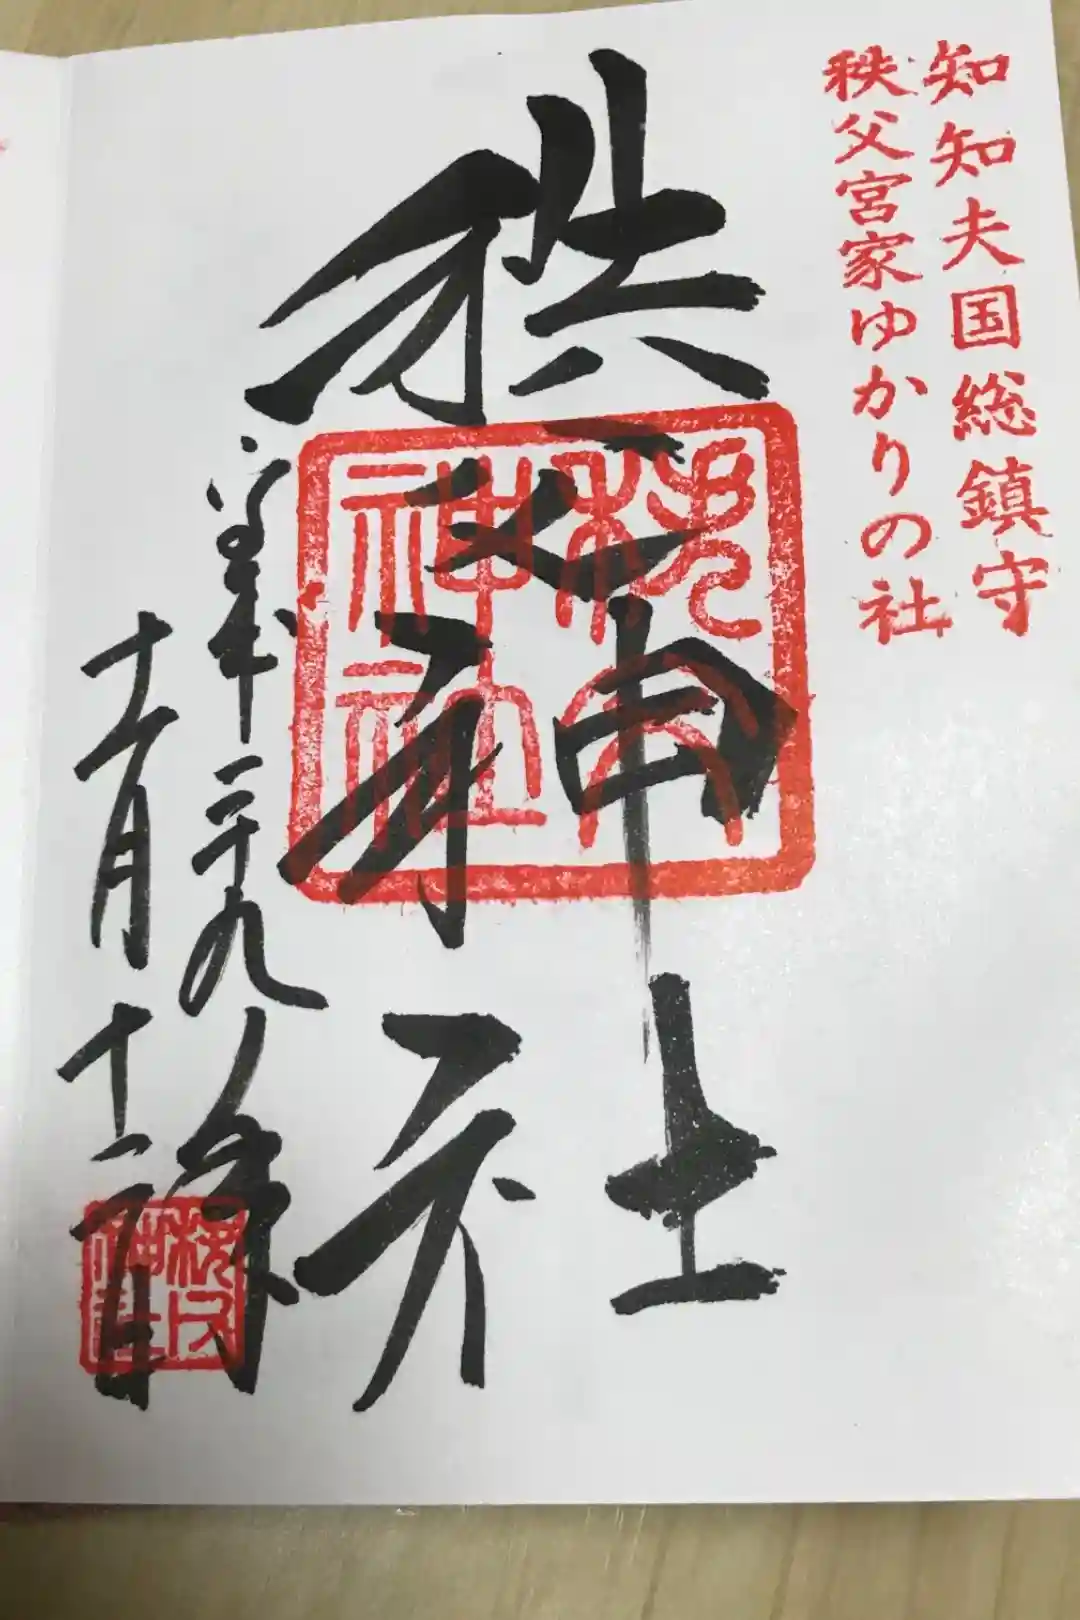 知知夫国総鎮守
秩父宮家ゆかりの社
秩父神社
秩父神社
平成二十九年
十一月十二日
秩父神社